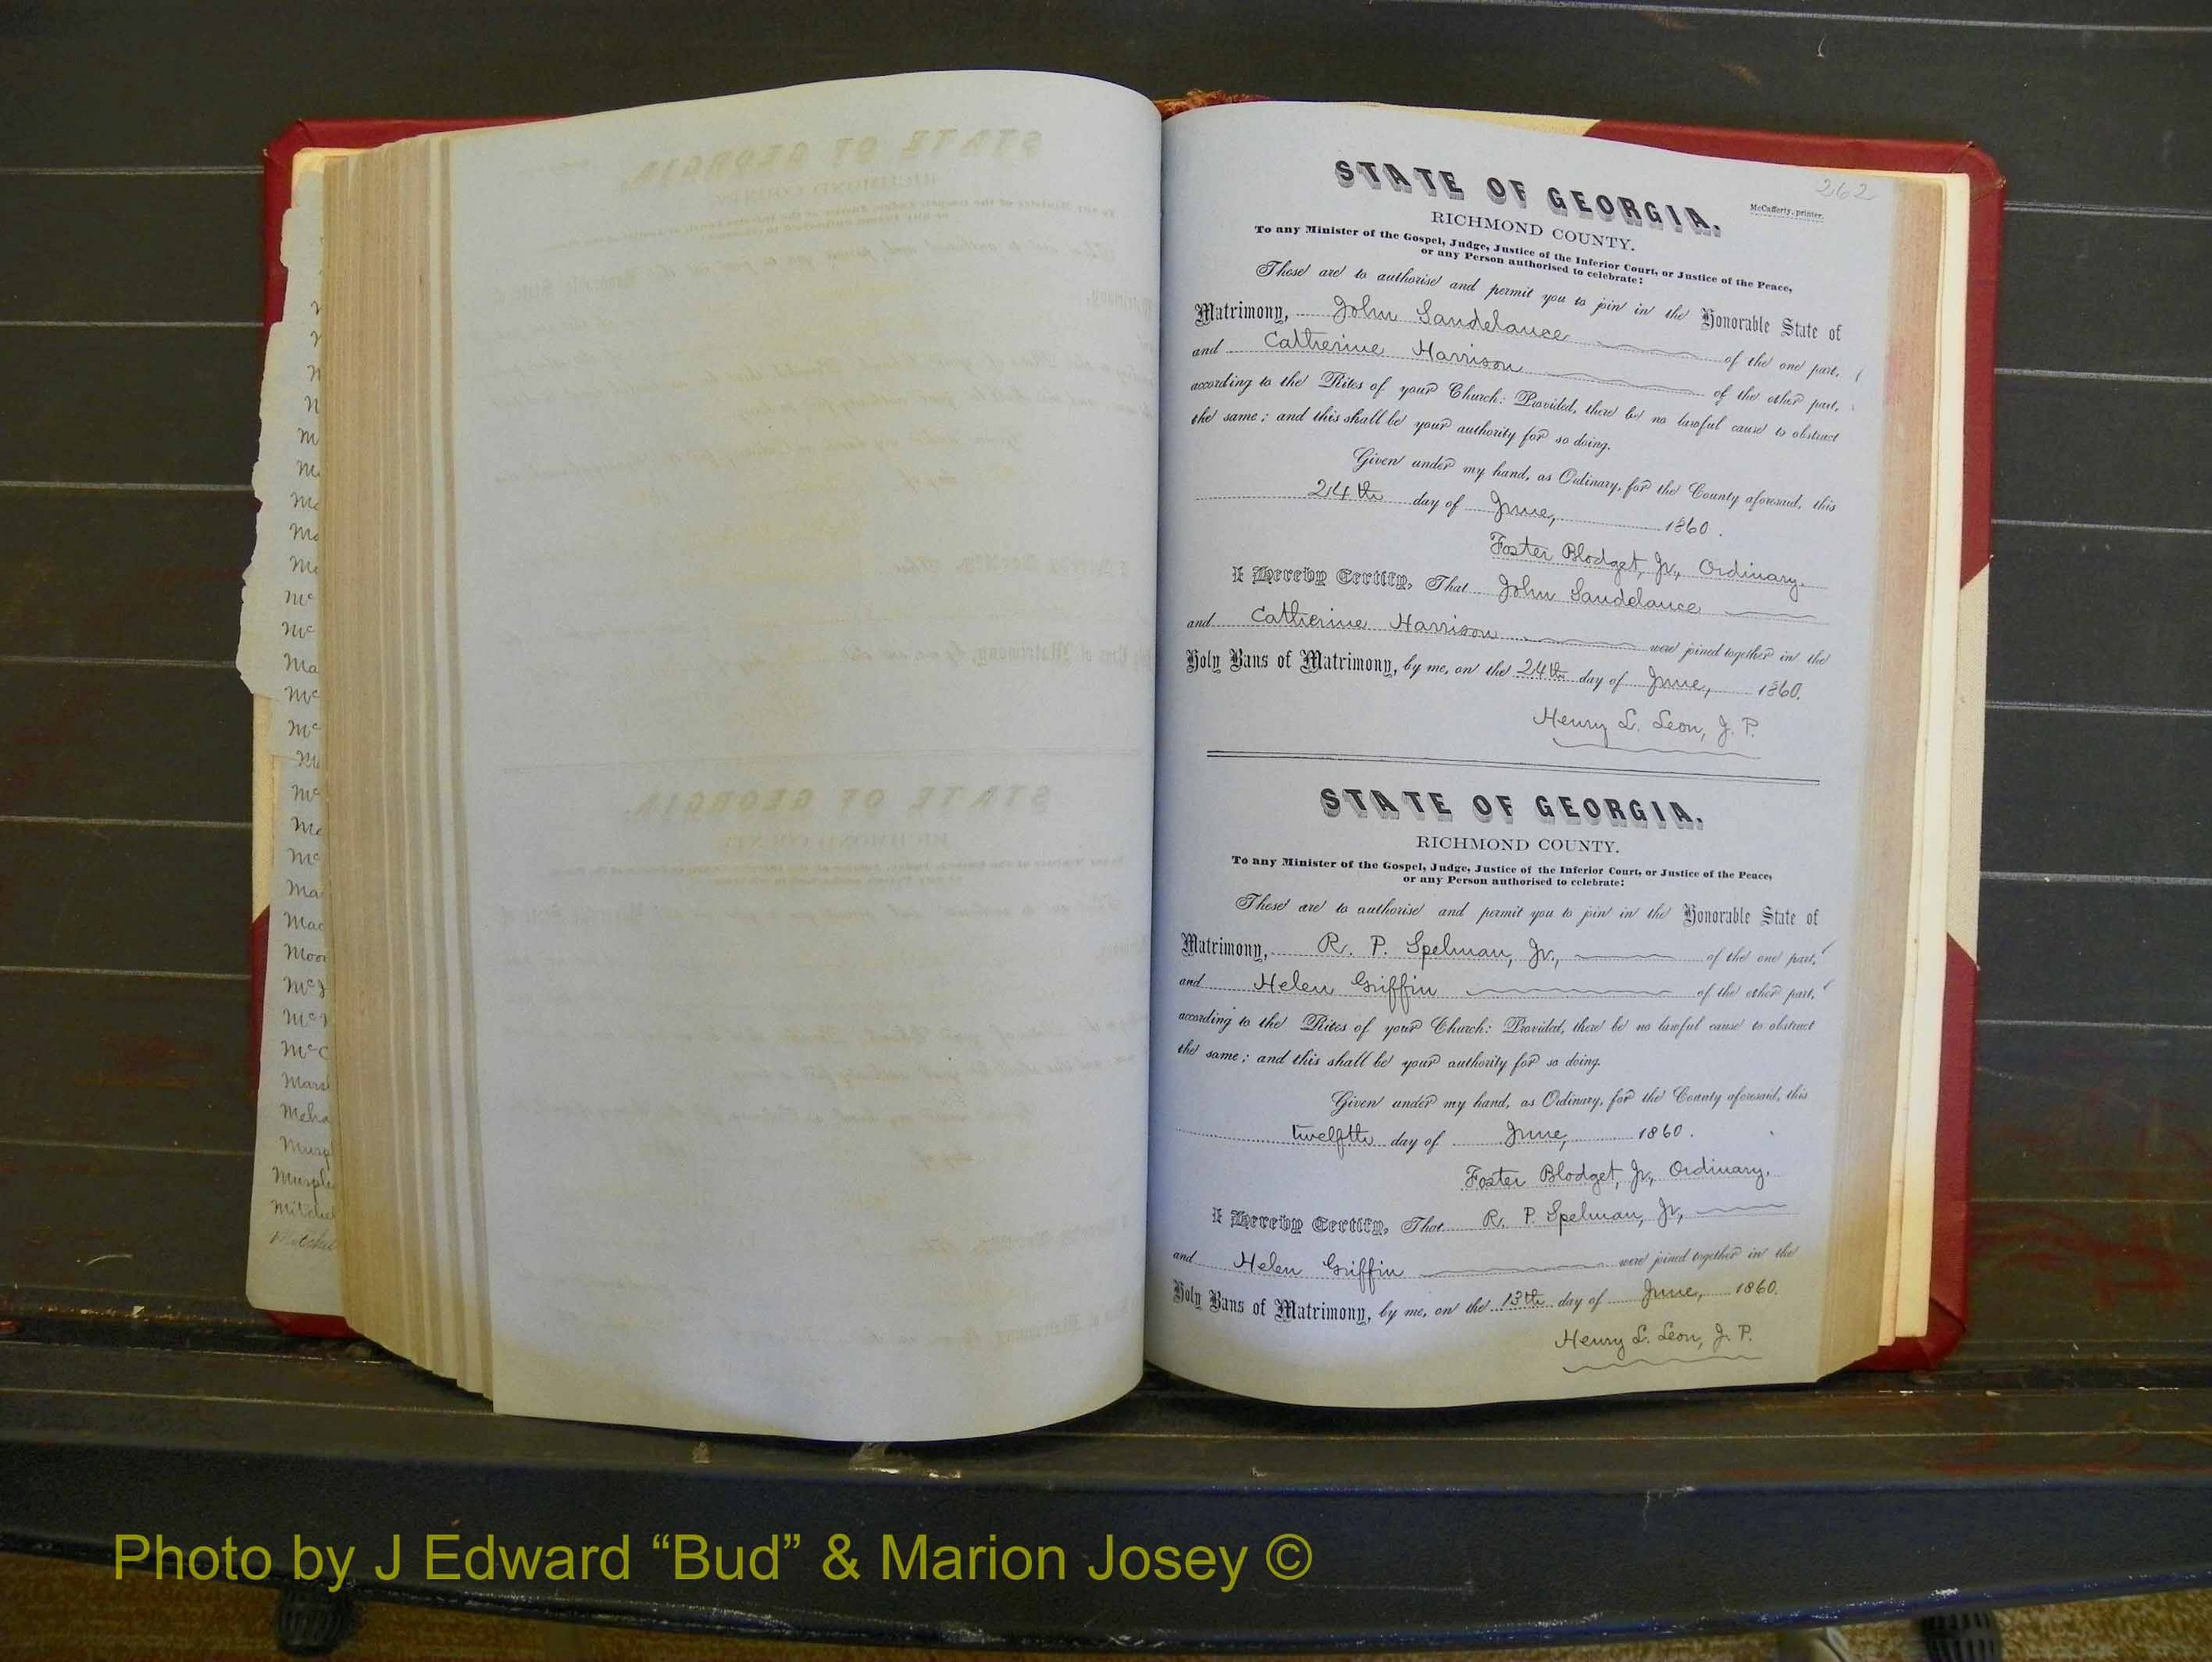 262
STATE OF GEORGIA.
McCafferty, printer.
RICHMOND COUNTY.
To any Minister of the Gospel, Judge, Justice of the Inferior Court, or Justice of the Peace,
or any Person authorised to celebrate:
These are to authorise and permit you to join in the Honorable State of
Matrimony, John Sandelance of the one part,
and Catherine Harrison of the other part,
according to the Rites of your Church: Provided, there be no lawful cause to obstruct
the same; and this shall be your authority for so doing.
Given under my hand, as Ordinary, for the County aforesaid, this
24th day of June, 1860.
Foster Blodget, Jr., Ordinary.
I Hereby Certify, That John Sandelance
and Catherine Harrison were joined together in the
Holy Bans of Matrimony, by me, on the 24th day of June, 1860.
Henry L. Leon, J. P.
STATE OF GEORGIA.
RICHMOND COUNTY.
To any Minister of the Gospel, Judge, Justice of the Inferior Court, or Justice of the Peace,
or any Person authorised to celebrate:
These are to authorise and permit you to join in the Honorable State of
Matrimony, R. P. Spelman, Jr., of the one part,
and Helen Griffin of the other part,
according to the Rites of your Church: Provided, there be no lawful cause to obstruct
the same; and this shall be your authority for so doing.
Given under my hand, as Ordinary, for the County aforesaid, this
twelfth day of June, 1860.
Foster Blodget, Jr., Ordinary.
I Hereby Certify, That R. P. Spelman, Jr.,
and Helen Griffin were joined together in the
Holy Bans of Matrimony, by me, on the 13th day of June, 1860.
Henry L. Leon, J. P.
Photo by J Edward “Bud” & Marion Josey ©